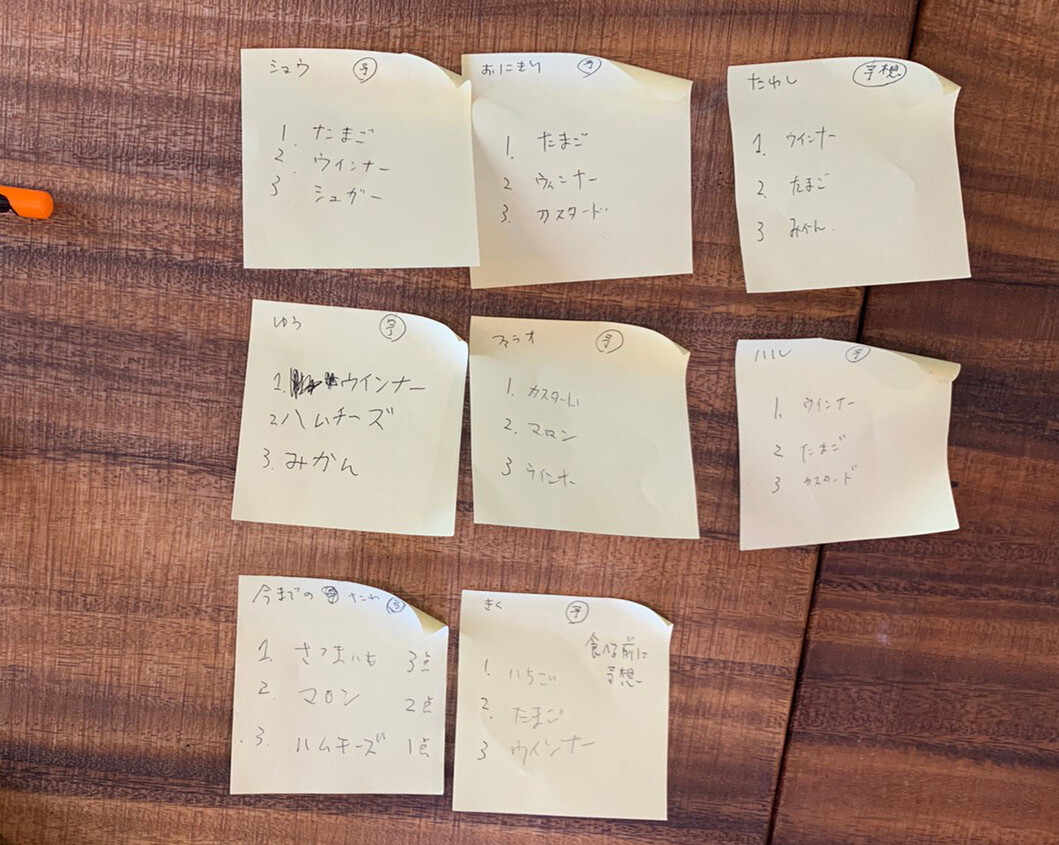 シュウ 予
1. たまご
2. ウインナー
3 シュガー
おにきり 予
1. たまご
2 ウィンナー
3. カスタード
たわし 予想
1. ウインナー
2. たまご
3 みかん.
ゆう 予
1. ウインナー
2 ハムチーズ
3. みかん
予
1. カスタード
2. マロン
3 ウインナー
ハル 予
1. ウインナー
2 たまご
3 カスタード
今までの 予
1. さつまいも 3点
2. マロン 2点
3. ハムチーズ 1点
きく 予
食べる前に
予想
1. いちごい
2. たまご
3 ウインナー